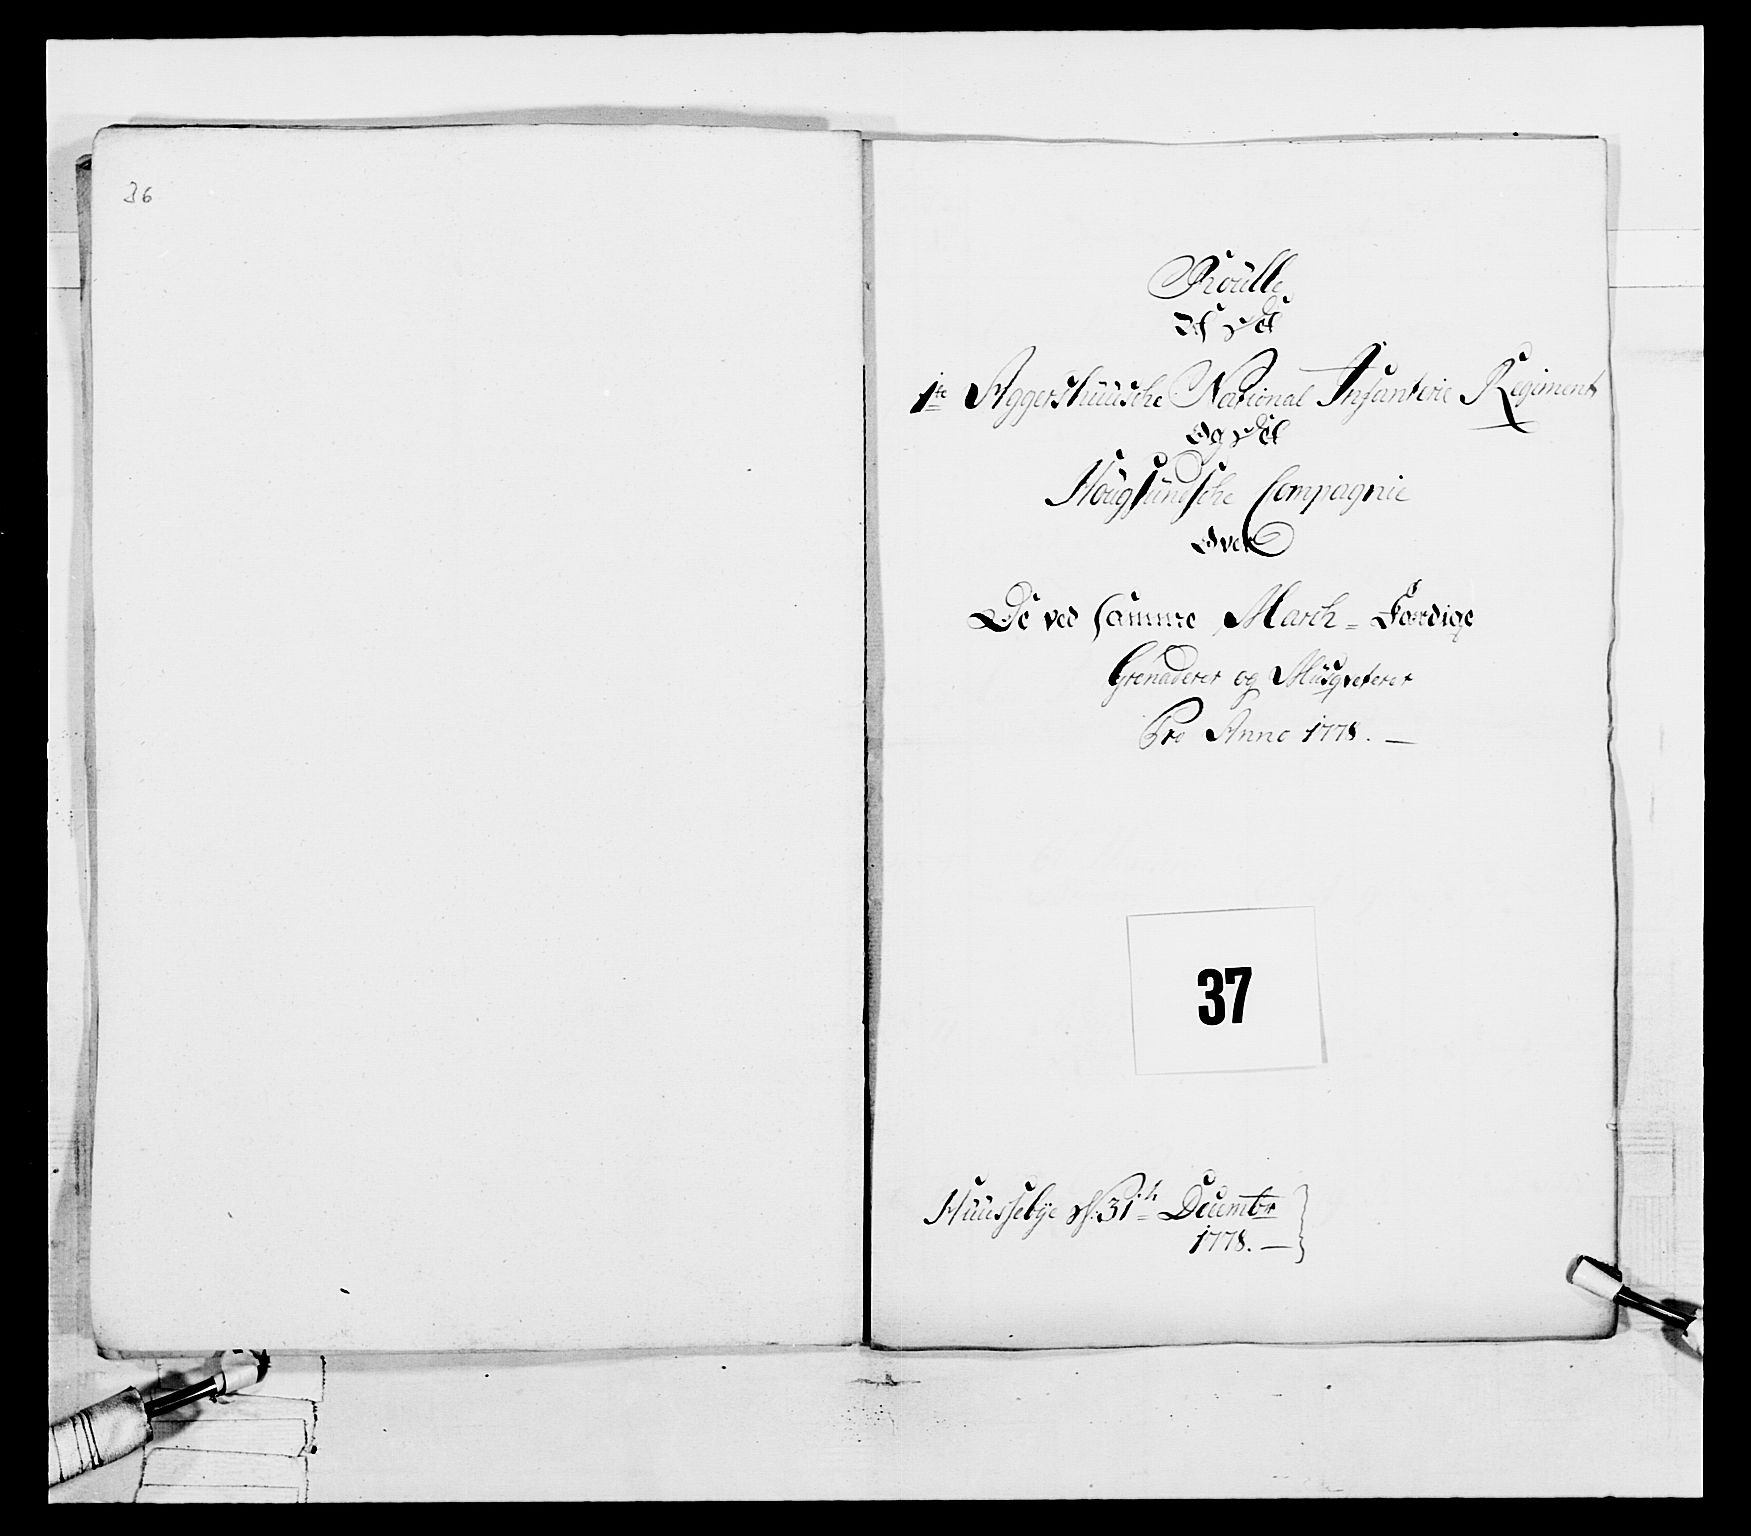 36
Roülle
Af det
1te Aggershüüsche National Infanterie Regiment
Og det
Hougsündsche Compagnie
Over
De ved samme March-Færdige
Grenaderer og Müsqveterer
Pro Anno 1778. —
37
Hüüssebÿe d: 31th Decembr
1778. —